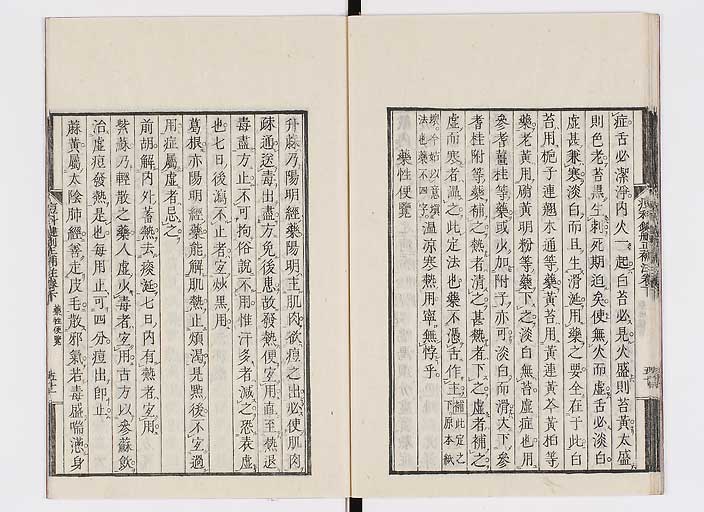 症舌必潔淨内火一起白苔必見火盛則苔黃太盛
則色老苔黑生刺死期迫矣使無火而虛舌必淡白
虛甚兼寒淡白而且生滑涎用藥之要全在于此白
苔用梔子連翹木通等藥黃苔用黃連黃芩黃柏等
藥老黃用硝黃明粉等藥下之淡白無苔虛症也用
參耆薑桂等藥或少加附子亦可淡白而滑大下參
耆桂附等藥補之熱者清之甚熱者下之虛者補之
虛而寒者溫之此定法也藥不憑舌作主
補此定之下原本紙
壞今姑以意撰法也藥不四字
溫涼寒熱用寧無悖乎
藥性便覽
升蔴乃陽明經藥陽明主肌肉欲痘之出必使肌肉
疎通送毒出盡方免後患故發熱便宜用直至熱退
毒盡方止不可拘俗說不用惟汗多者減之恐表虛
也七日後瀉不止者宜炒黑用
葛根亦陽明經藥能解肌熱止煩渴見㸃後不宜過
用症屬虛者忌之
前胡解内外蓄熱去痰涎七日内有熱者宜用
紫蘇乃輕散之藥人虛火毒者宜用古方以參蘇飲
治虛痘發熱是也每用止可四分痘出即止
蔴黃屬太陰肺經善走皮毛散邪氣若毒盛喘懣身
藥性便覽